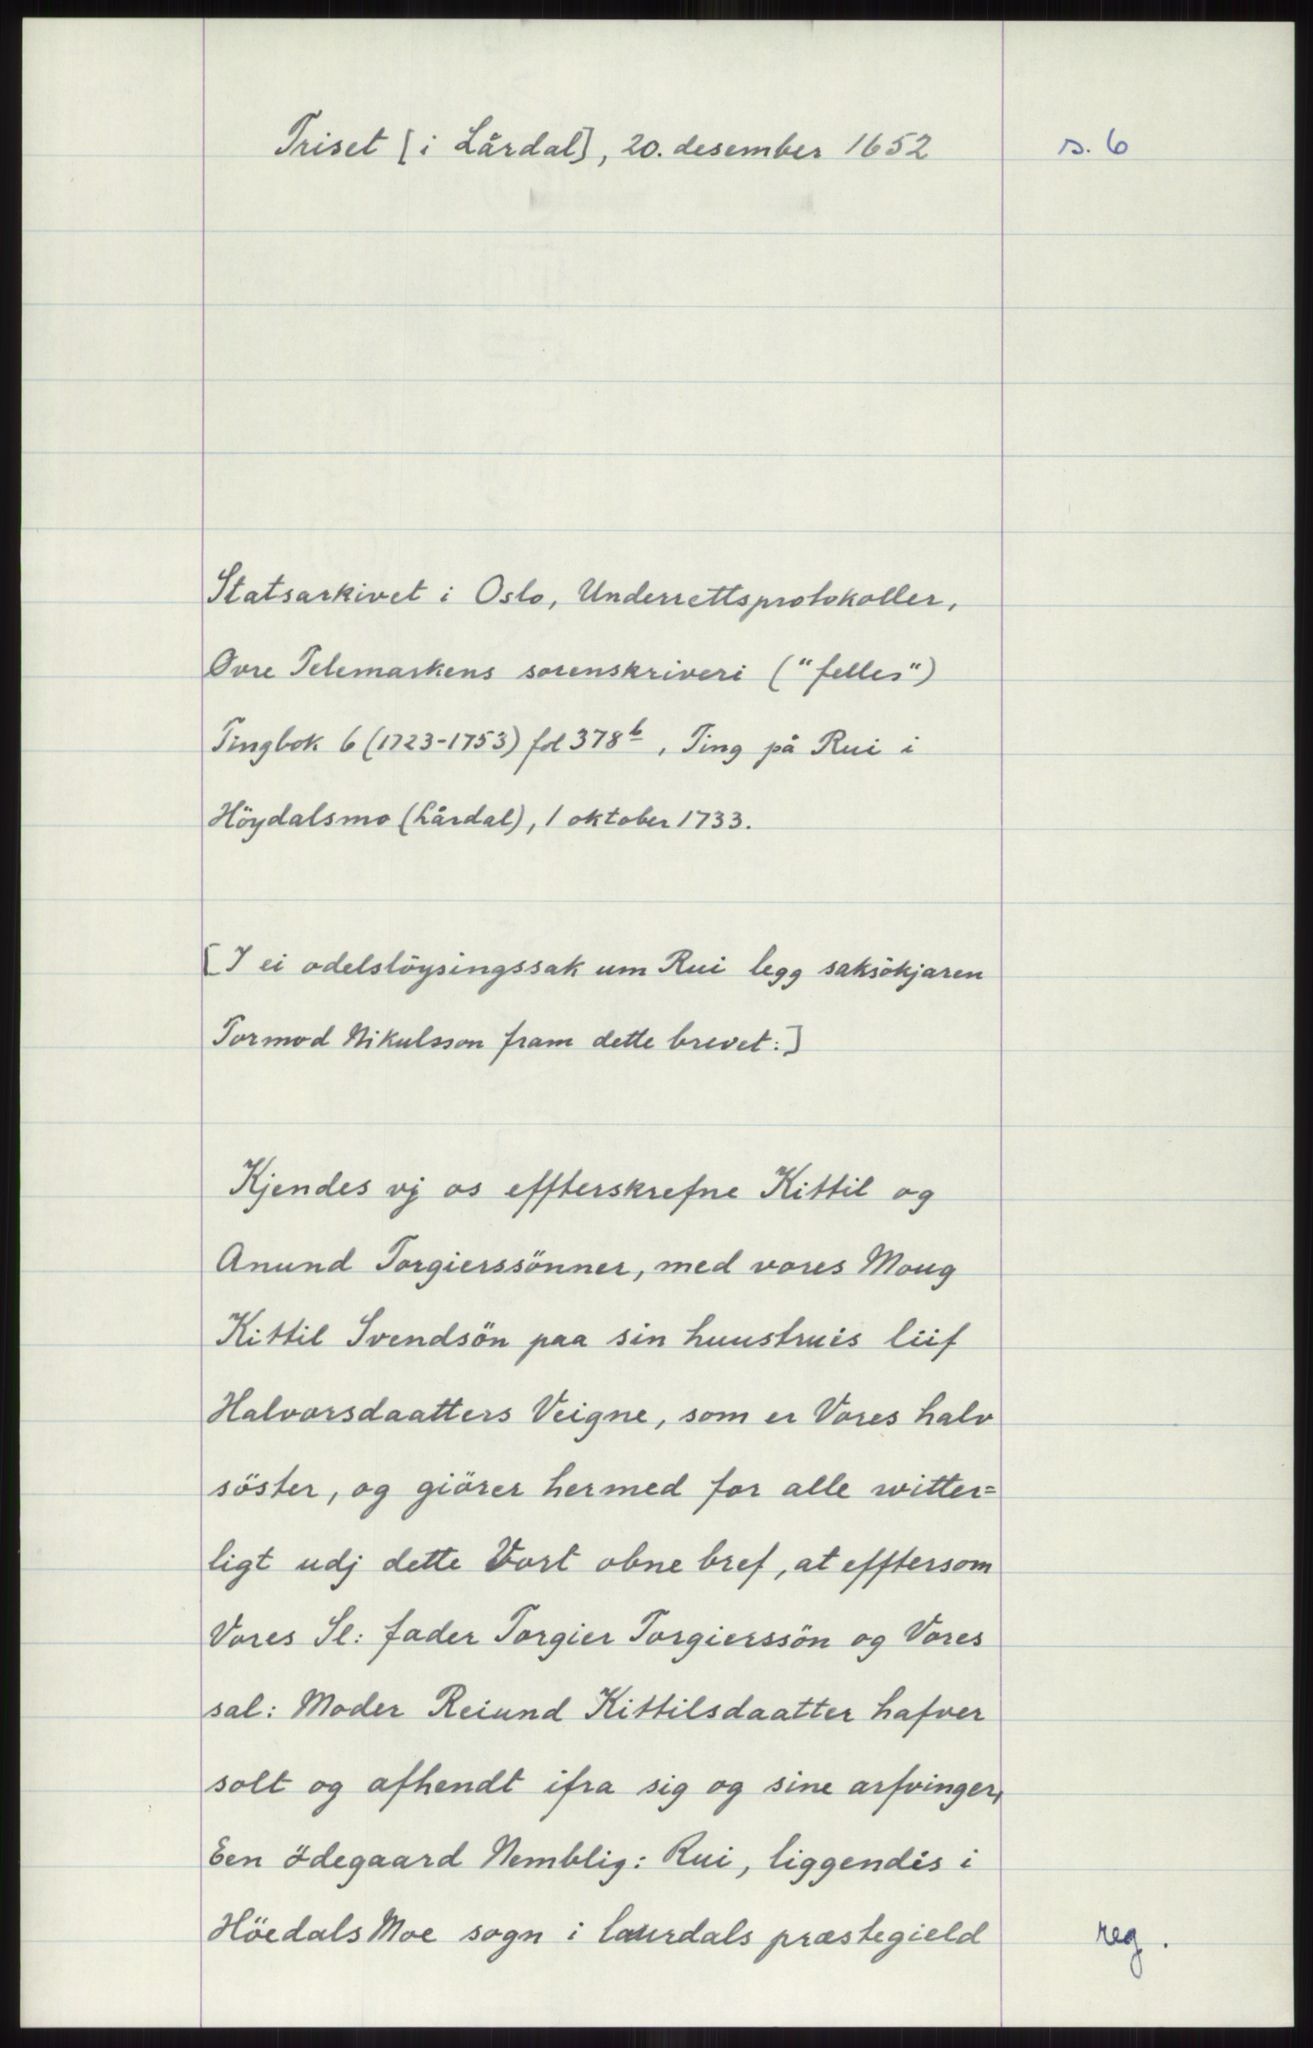 Triset [i Lårdal], 20. desember 1652
s. 6
Statsarkivet i Oslo, Underrettsprotokoller,
Øvre Telemarkens sorenskriveri ("felles")
Tingbok 6 (1723-1753) fol 378b, Ting på Rui i
Höydalsmo (Lårdal), 1 oktober 1733.
[I ei odelslöysingssak um Rui legg saksökjaren
Tormod Nikulsson fram dette brevet:]
Kjendes vj os effterskrefne Kittil og
Anund Torgierssönner, med vores Moug
Kittil Svendsön paa sin huustruis liif
Halvorsdaatters Veigne, som er Vores halv
söster, og giörer hermed for alle witter=
ligt udj dette Vort obne bref, at efftersom
Vores Sl: fader Torgier Torgierssön og Vores
sal: Moder Reiund Kittilsdaatter hafver
solt og afhendt ifra sig og sine arfvinger,
Een ödegaard Nemblig: Rui, liggendis i
Höedals Moe sogn i laurdals præstegield
reg.